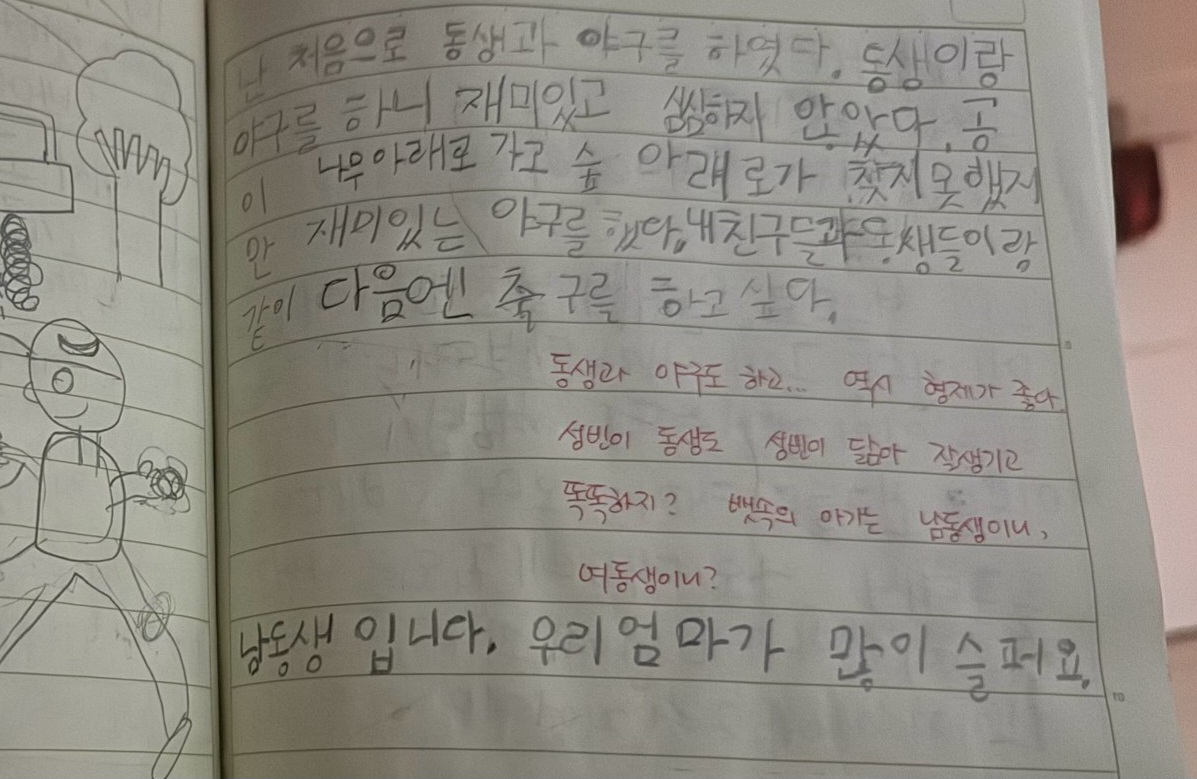 난 처음으로 동생과 야구를 하였다. 동생이랑
야구를 하니 재미있고 씸씸하지 안았다. 공
이 나무아래로 가고 숲 아래로가 찾지못했지
만 재미있는 야구를 했다. 내친구들과 동생들이랑
같이 다음엔 축구를 하고 싶다.
동생과 야구도 하고... 역시 형제가 좋다
성빈이 동생도 성빈이 닮아 잘생기고
똑똑하지? 뱃속의 아가는 남동생이니,
여동생이니?
남동생 입니다. 우리 엄마가 많이 슬퍼요.